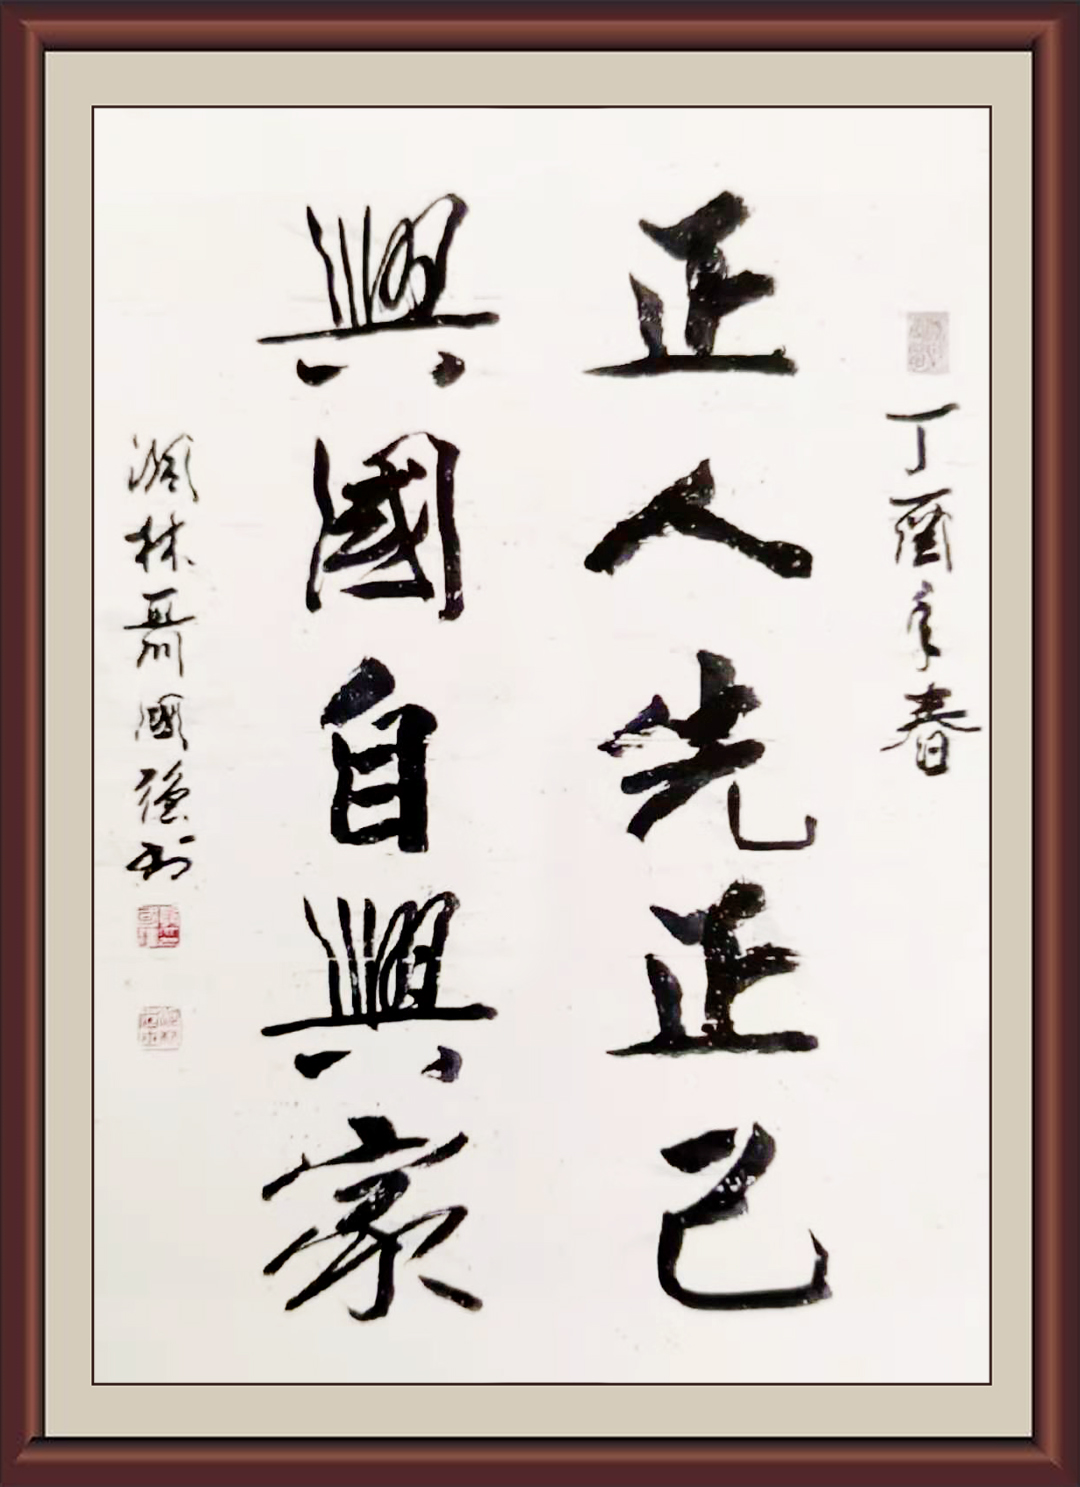 丁酉年春
正人先正己
興國自興家
林聶國強書